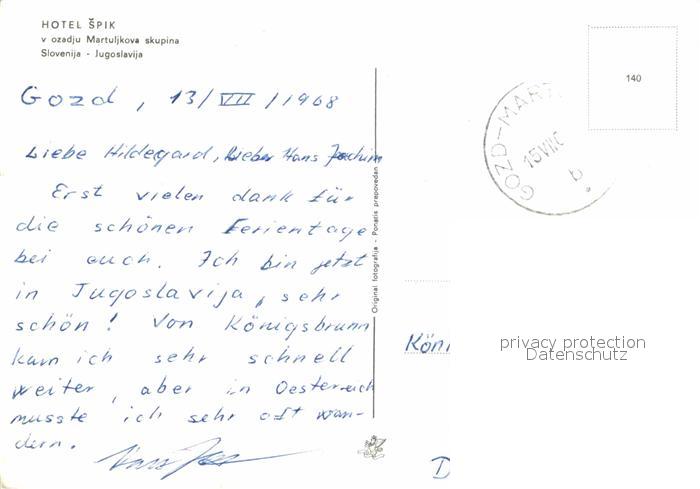 HOTEL ŠPIK
v ozadju Martuljkova skupina
Slovenija - Jugoslavija
Gozd, 13/VII/1968
Liebe Hildegard, lieber Hans Joachim
Erst vielen dank für
die schönen Ferientage
bei euch. Ich bin jetzt
in Jugoslavija, sehr
schön! Von Königsbrunn
kam ich sehr schnell
weiter, aber in Oesterreich
musste ich sehr oft wan-
dern.
Original fotografija - Ponatis prepovedan
140
GOZD-MART
15 VII
b
Köni
privacy protection
Datenschutz
D